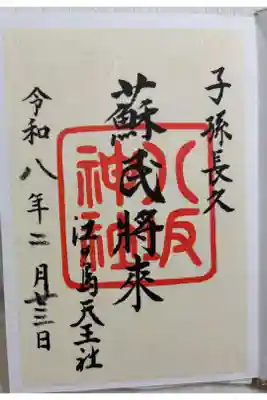 子孫長久
蘇民將來
八坂
神社
江ノ島天王社
令和八年二月廿三日